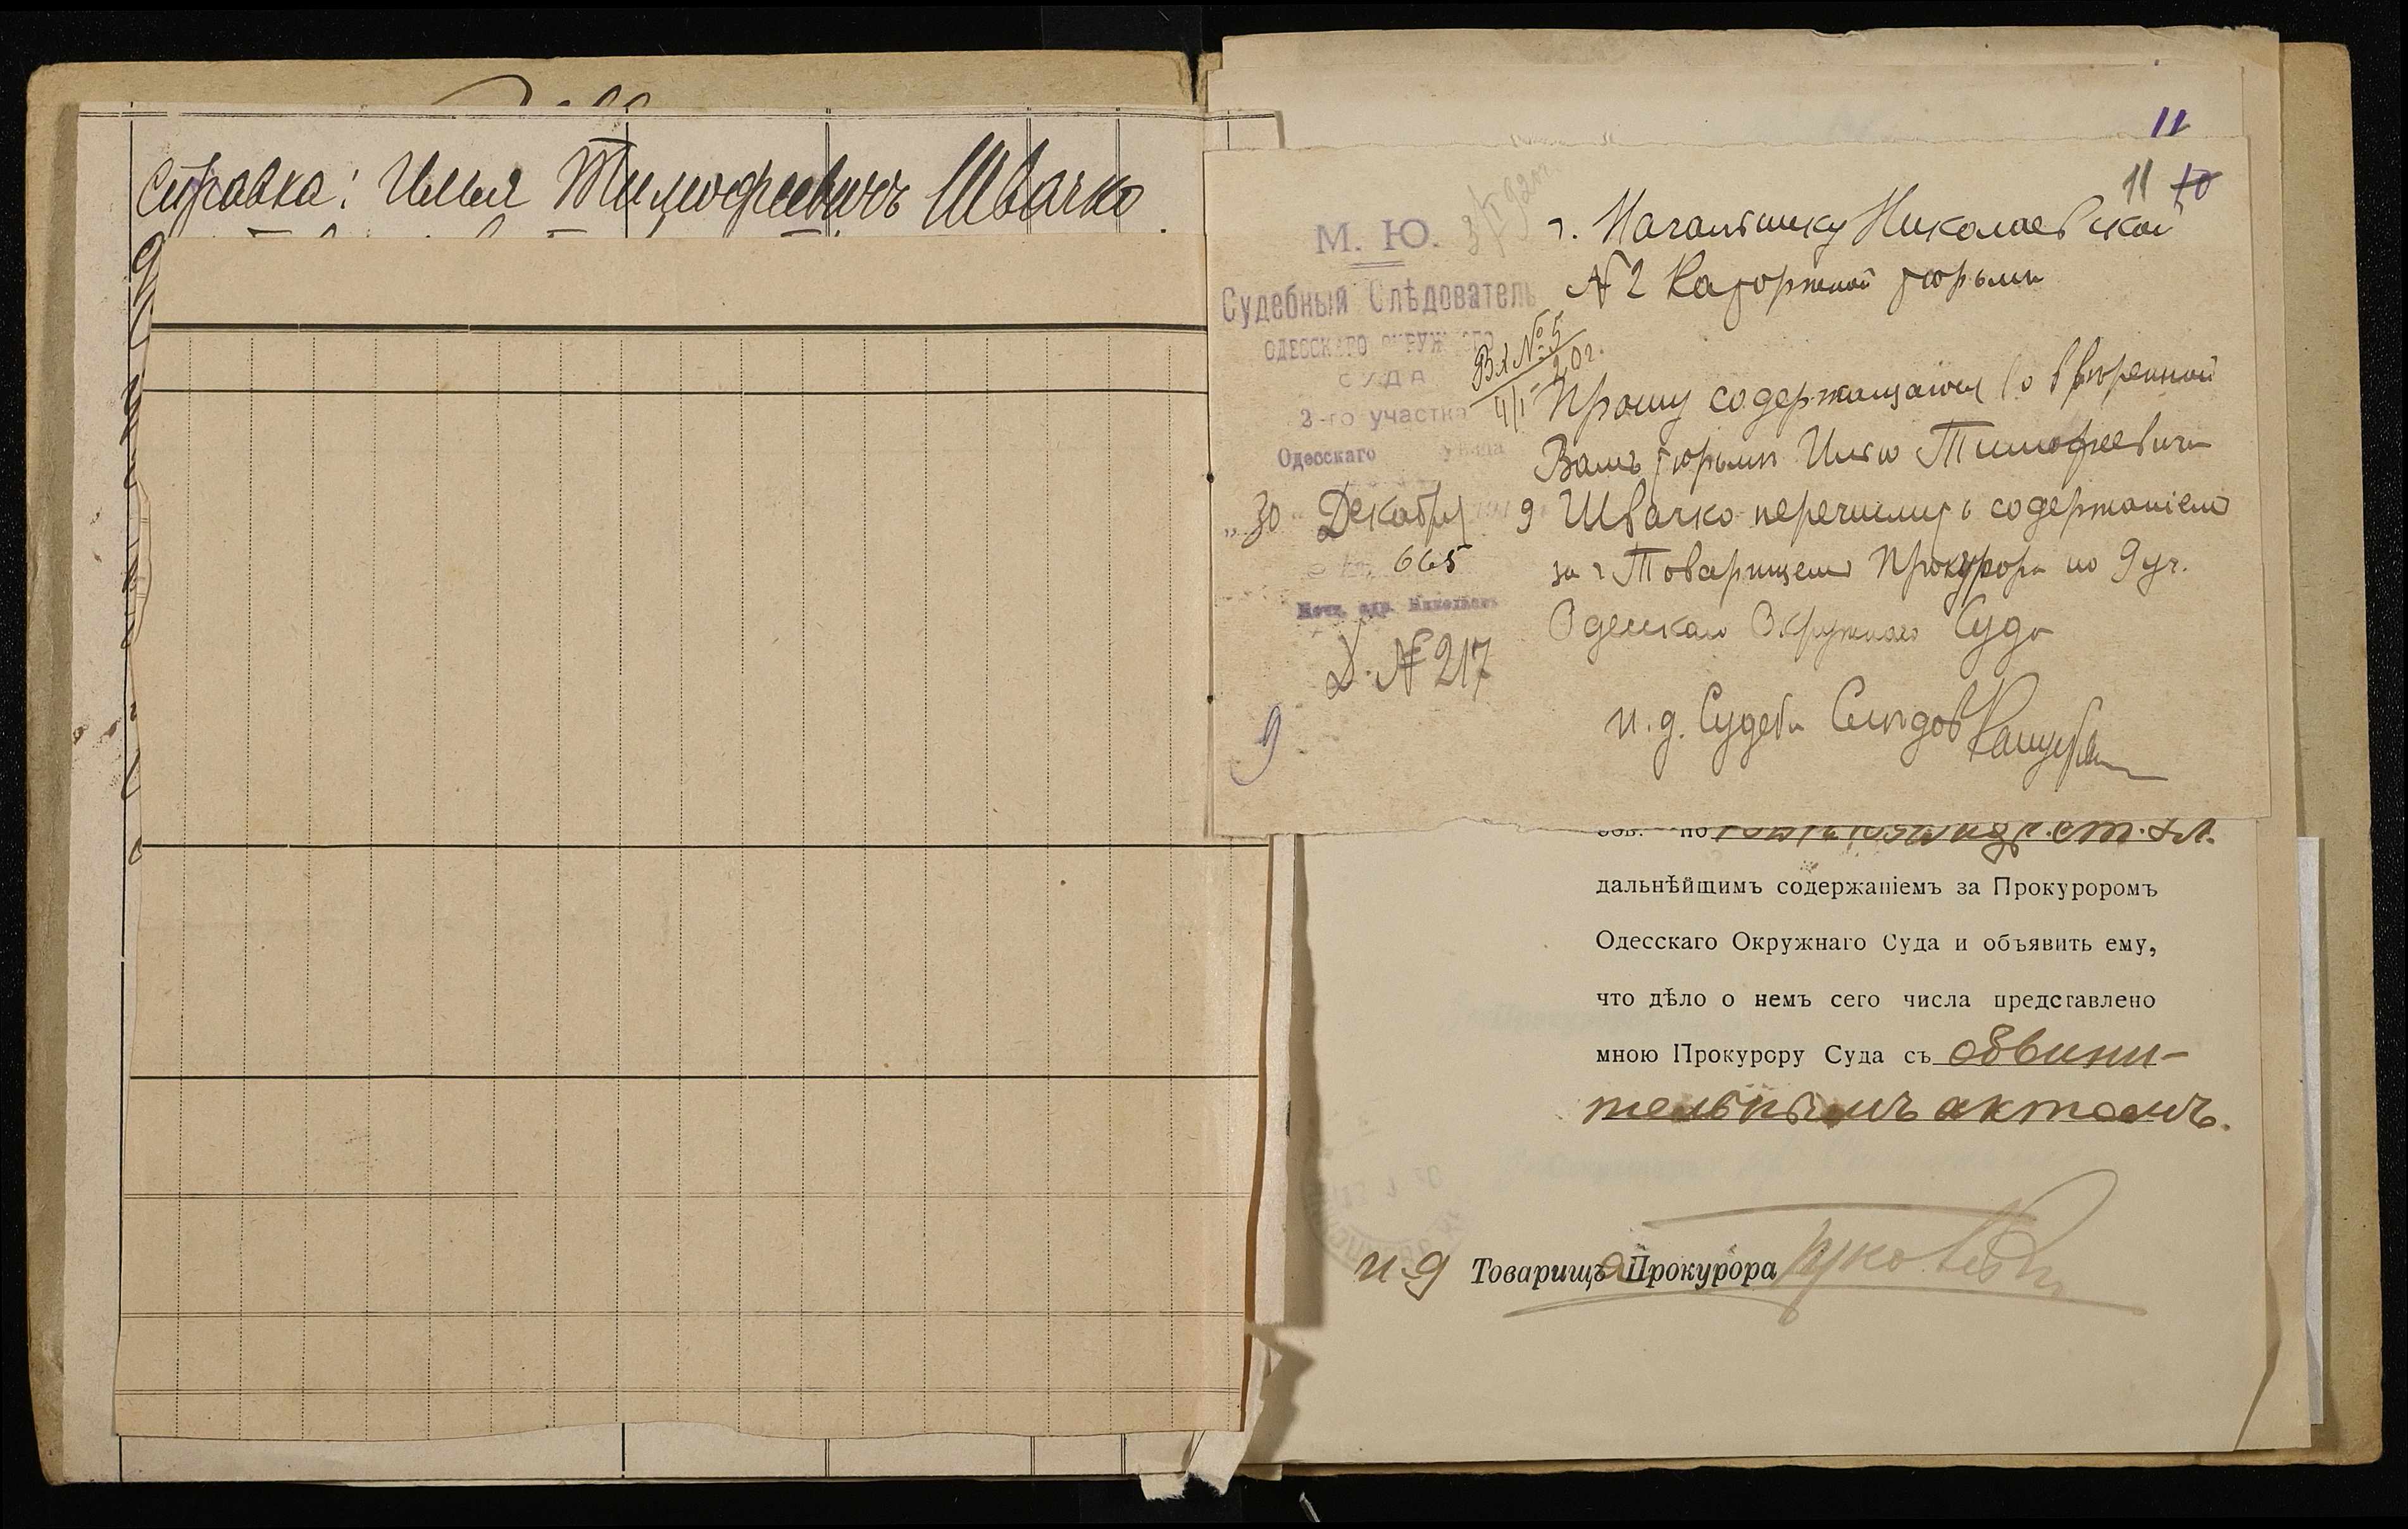 Справка: Илья Тимофеевичъ Швачко
11
11 10
М. Ю.
Судебный Слѣдователь
ОДЕССКАГО ОКРУЖНАГО
СУДА
2-го участка
Одесскаго Уѣзда
„30 Декабря 9
665
Почт. адр. Николаевъ
Д. № 217
9
Вх № 5
4/I 20 г.
г. Начальнику Николаевской
№ 2 Каторжной тюрьмы
Прошу содержащагося во ввѣренной
Вамъ тюрьмѣ Илью Тимофеевича
Швачко перечислить содержаніемъ
за г Товарищемъ Прокурора по 9 уч.
Одесскаго Окружнаго Суда
и. д. Судебн Слѣдов
ст. УЛ.
дальнѣйшимъ содержаніемъ за Прокуроромъ
Одесскаго Окружнаго Суда и объявить ему,
что дѣло о немъ сего числа представлено
мною Прокурору Суда съ обвини-
тельнымъ актомъ.
и.д Товарища Прокурора